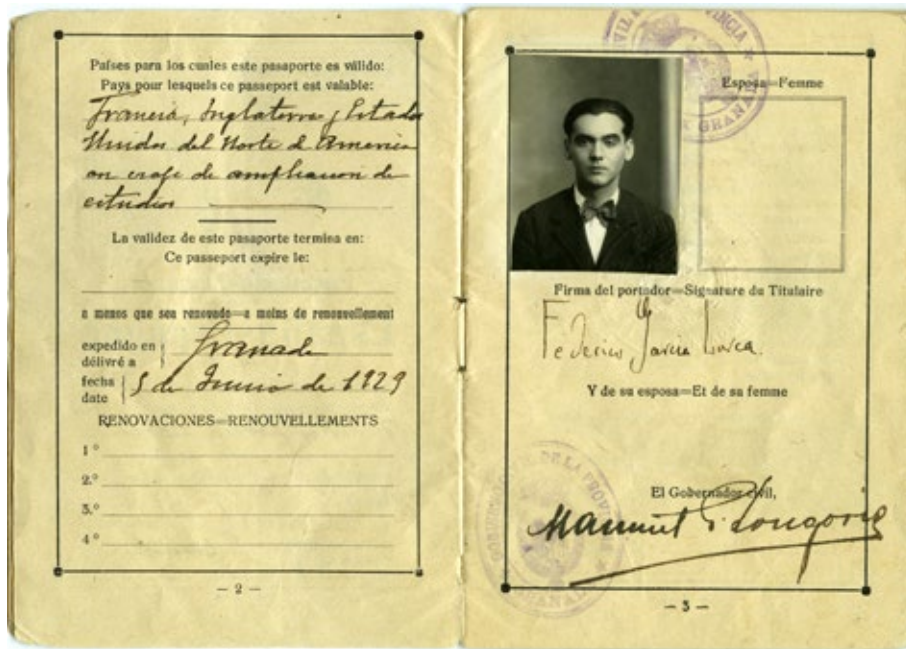 Países para los cuales este pasaporte es válido:
Pays pour lesquels ce passeport est valable:
Francia, Inglaterra y Estados
Unidos del Norte de America
en viaje de ampliacion de
estudios
La validez de este pasaporte termina en:
Ce passeport expire le:
a menos que sea renovado=a moins de renouvellement
expedido en
délivré a
Granada
fecha
date
5 de Junio de 1929
RENOVACIONES=RENOUVELLEMENTS
1º
2.º
3.º
4º
— 2 —
PROVINCIA
GRANADA
Esposa=Femme
Firma del portador=Signature du Titulaire
Federico García Lorca.
Y de su esposa=Et de su femme
DE LA PROVINCIA
GRANADA
El Gobernador civil,
Manuel
— 3 —